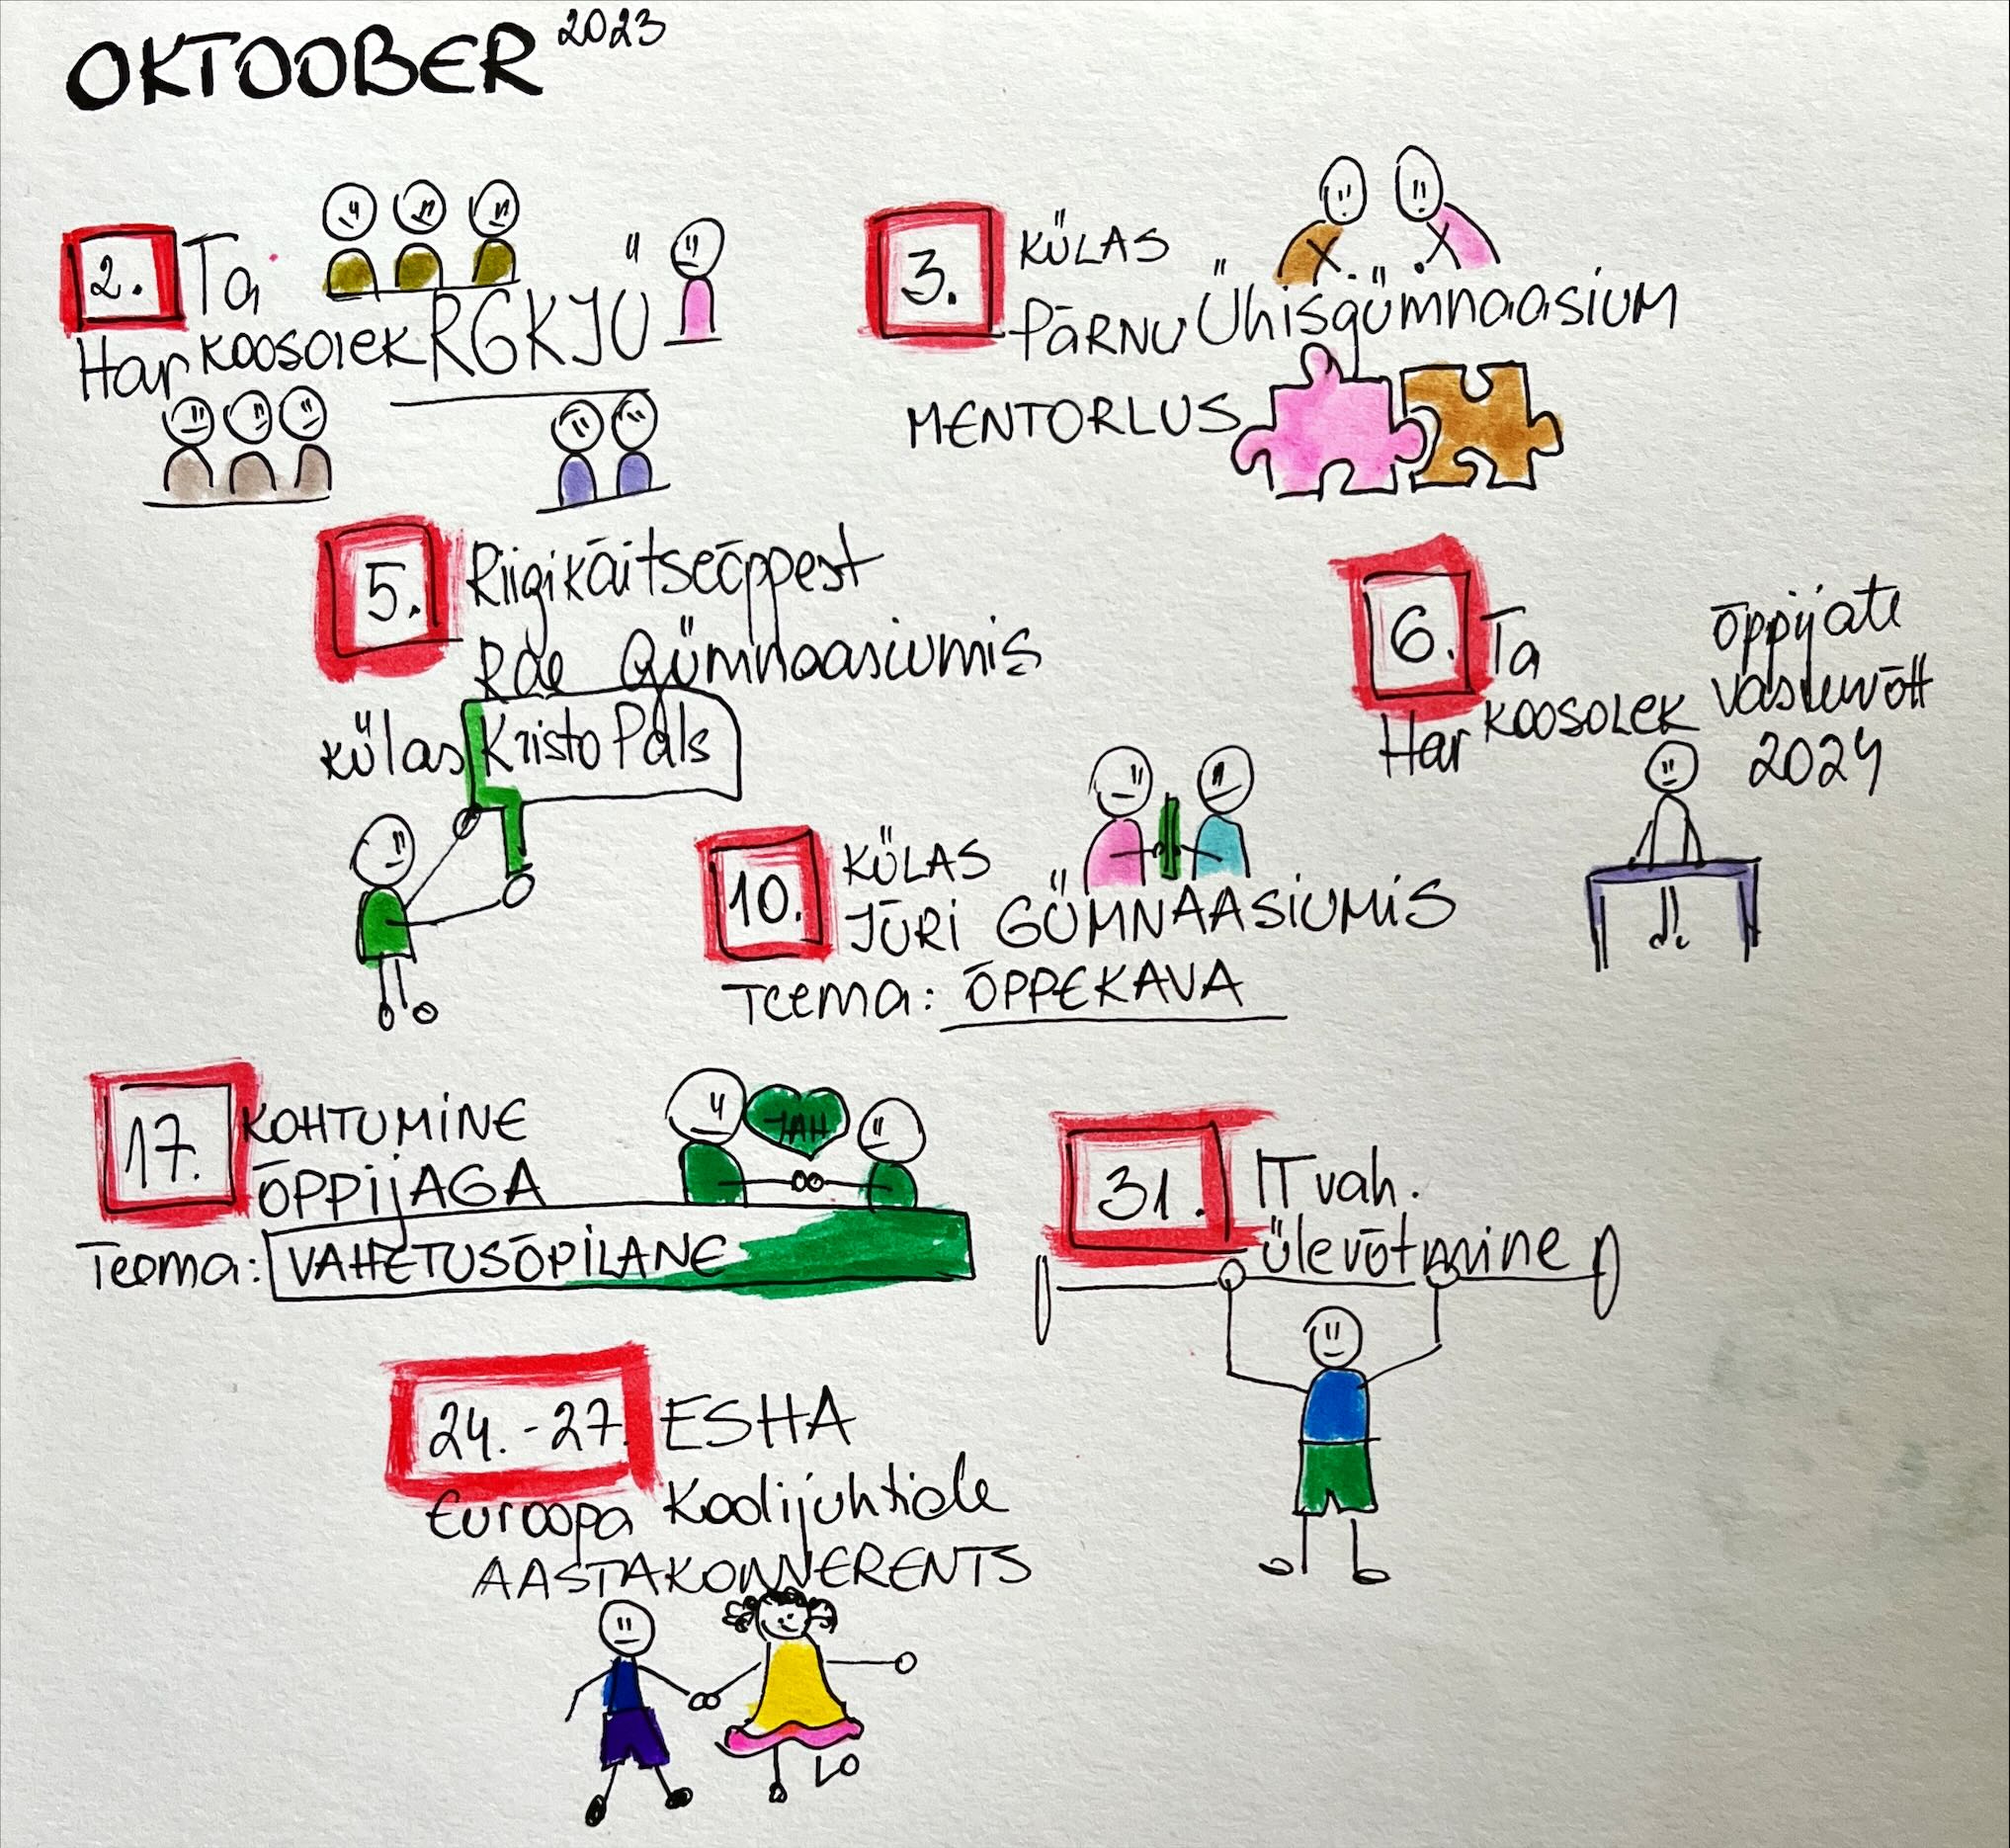 OKTOOBER 2023
2. Ta
Har koosolek RGKJÜ
3. KÜLAS
PÄRNU Ühisgümnaasium
MENTORLUS
5. Riigikaitseõppest
Rae Gümnaasiumis
külas Kristo Pals
6. Ta
Har koosolek
õppijate
vastuvõtt
2024
10. KÜLAS
JÜRI GÜMNAASIUMIS
Teema: ÕPPEKAVA
17. KOHTUMINE
ÕPPIJAGA
JAH
Teema: VAHETUSÕPILANE
31. IT vah.
ülevõtmine
24.-27. ESHA
Euroopa Koolijuhtide
AASTAKONVERENTS